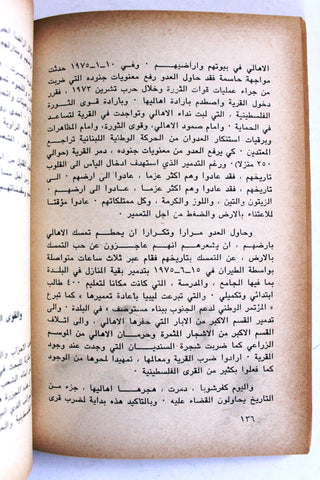 الاهالي في بيوتهم واراضيهم . وفي ١٠-١-١٩٧٥ حدثت
مواجهة حاسمة فقد حاول العدو رفع معنويات جنوده التي ضربت
من جراء عمليات قوات الثورة وخلال حرب تشرين ١٩٧٣ ، فقرر
دخول القرية واصطدم بارادة اهاليها . وبارادة قوى الثورة
الفلسطينية ، التي لبت نداء الاهالي وتواجدت في القرية لتساعد
في الحماية . وامام صمود الاهالي، وقوى الثورة، وامام المظاهرات
وبرقيات استنكار العدوان من الحركة الوطنية اللبنانية تراجع
المعتدين . كي يرفع العدو من معنويات جنوده ، دمر القرية (حوالي
٢٥٠ منزلا) وبرغم التدمير الذي استهدف ادخال الياس الى القلوب
تاريخهم ، فقد عادوا وهم اكثر عزما ، عادوا الى ارضهم ..
تاريخهم ، فقد عادوا وهم اكثر عزما .. عادوا الى ارضهم
الزيتون والتين ، واللوز والكرمة ، وكل ممتلكاتهم . عادوا مؤقتا
للاعتناء بالارض والضغط من اجل التعمير .
وحاول العدو مرارا وتكرارا ان يحطم تمسك الاهالي
بارضهم ، ان يشعرهم انهم عاجزون عن حب التمسك
بالارض ، عن التمسك بتاريخهم فقام عبر ثلاث ساعات متواصلة
بواسطة الطيران في ١٥-٦-١٩٧٥ بتدمير بقية المنازل في البلدة
بما فيها الجامع ، والمدرسة ، التي كانت مكانا لتعليم ٤٠٠ طالب
ابتدائي وتكميلي ، والتي تبرعت ليبيا باعادة تعميرها » كما تبرع
المؤتمر الوطني لدعم الجنوب ببناء مستوصف » في البلدة . والى
تدمير القسم الاكبر من الابار التي حفرها الاهالي ، والى اتلاف
القسم الاكبر من الاشجار المثمرة وحرمان الاهالي من الموسم
الزراعي كما وضربت شجرة السنديان التي وجدت عند وجود
القرية . ارادوا ضرب القرية ومعالمها ، تمهيدا لمحوها من الوجود
كما فعلوا بكثير من القرى الفلسطينية .
واليوم كفرشوبا ، دمرت ، هجرها اهاليها ، جزء من
التاريخ يحاولون القضاء عليه . وبالتاكيد هذه بداية لضرب قرى
١٣٦